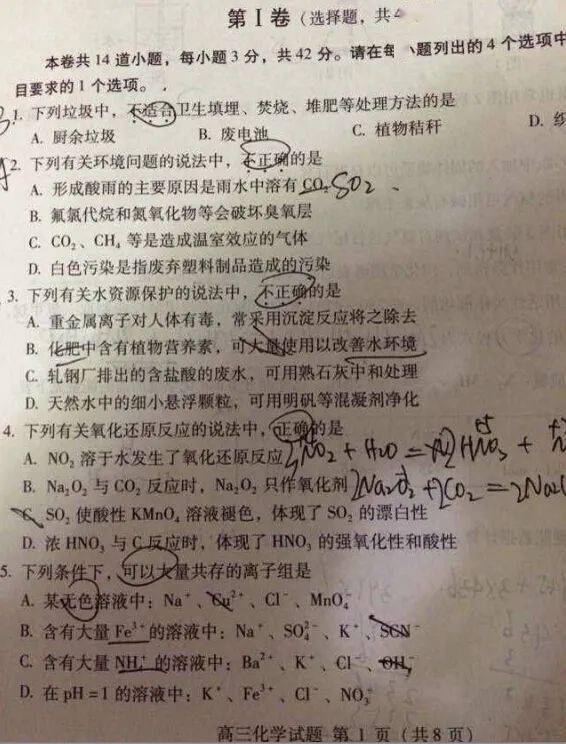 第Ⅰ卷（选择题，共4
本卷共14道小题，每小题3分，共42分。请在每 题列出的4个选项中
目要求的1个选项。
1. 下列垃圾中，不适合卫生填埋、焚烧、堆肥等处理方法的是
A. 厨余垃圾 B. 废电池 C. 植物秸秆 D.
2. 下列有关环境问题的说法中，不正确的是
A. 形成酸雨的主要原因是雨水中溶有CO₂ SO₂
B. 氟氯代烷和氮氧化物等会破坏臭氧层
C. CO₂、CH₄等是造成温室效应的气体
D. 白色污染是指废弃塑料制品造成的污染
3. 下列有关水资源保护的说法中，不正确的是
A. 重金属离子对人体有毒，常采用沉淀反应将之除去
B. 化肥中含有植物营养素，可大量使用以改善水环境
C. 轧钢厂排出的含盐酸的废水，可用熟石灰中和处理
D. 天然水中的细小悬浮颗粒，可用明矾等混凝剂净化
4. 下列有关氧化还原反应的说法中，正确的是
A. NO₂溶于水发生了氧化还原反应 3NO₂ + H₂O = 2HNO₃ +
B. Na₂O₂与CO₂反应时，Na₂O₂只作氧化剂 2Na₂O₂ + 2CO₂ = 2Na₂
C. SO₂使酸性KMnO₄溶液褪色，体现了SO₂的漂白性
D. 浓HNO₃与C反应时，体现了HNO₃的强氧化性和酸性
5. 下列条件下，可以大量共存的离子组是
A. 某无色溶液中：Na⁺、Cu²⁺、Cl⁻、MnO₄⁻
B. 含有大量Fe³⁺的溶液中：Na⁺、SO₄²⁻、K⁺、SCN⁻
C. 含有大量NH₄⁺的溶液中：Ba²⁺、K⁺、Cl⁻、OH⁻
D. 在pH=1的溶液中：K⁺、Fe³⁺、Cl⁻、NO₃⁻
高三化学试题 第1页（共8页）